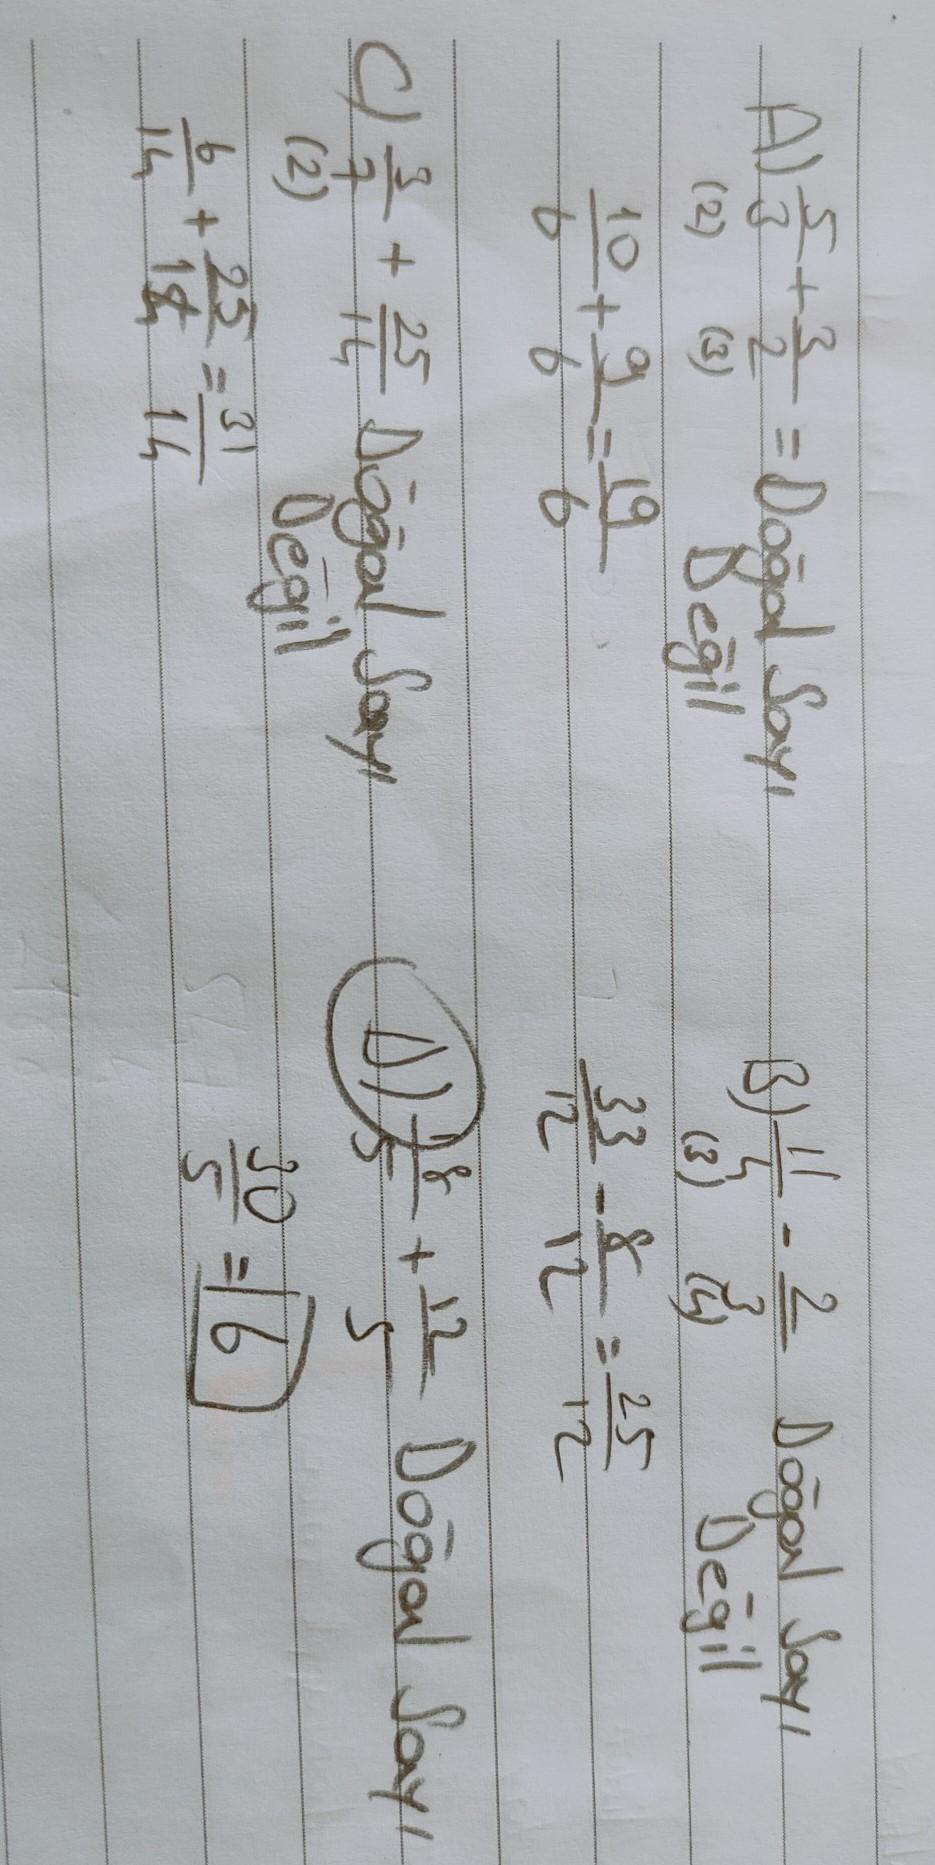 A) 5/3 + 3/2 = Doğal Sayı
(2) (3) Değil
10/6 + 9/6 = 19/6
B) 11/4 - 2/3 Doğal Sayı
(3) (4) Değil
33/12 - 8/12 = 25/12
C) 3/7 + 25/14 Doğal Sayı
(2) Değil
6/14 + 25/14 = 31/14
D) 18/5 + 12/5 Doğal Sayı
30/5 = 6